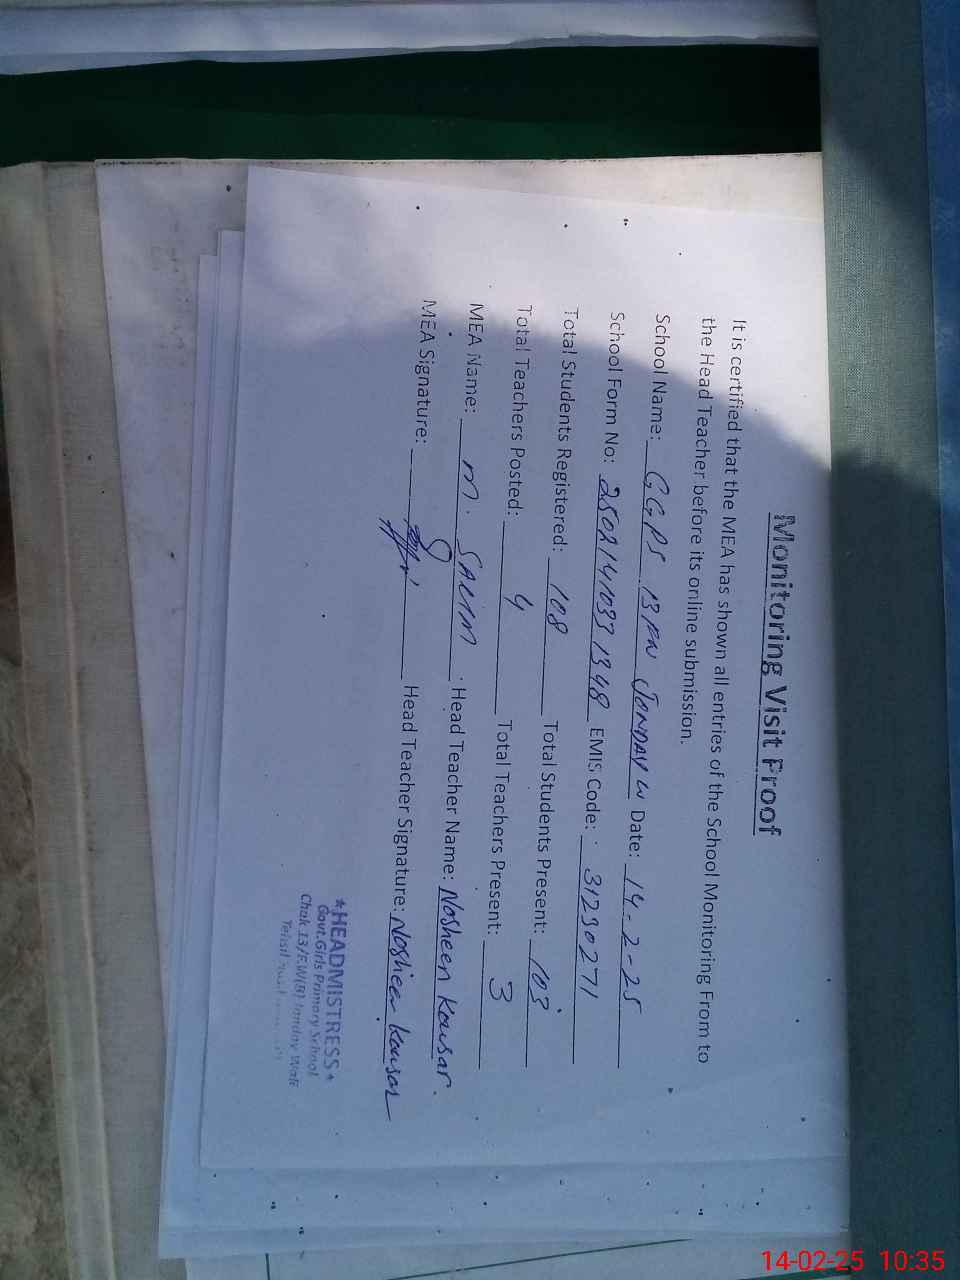 Monitoring Visit Proof
It is certified that the MEA has shown all entries of the School Monitoring From to
the Head Teacher before its online submission.
School Name: GGPS 13 FW JONDAY W Date: 14-2-25
School Form No: 25021410331348 EMIS Code: 31230271
Total Students Registered: 108 Total Students Present: 103
Total Teachers Posted: 4 Total Teachers Present: 3
MEA Name: M. SALIM Head Teacher Name: Nosheen Kousar.
MEA Signature: Head Teacher Signature: Nosheen Kousar
*HEADMISTRESS*
Govt.Girls Primary School
Chak 13/F.W(B) Jonday Wali
Tehsil
14-02-25 10:35